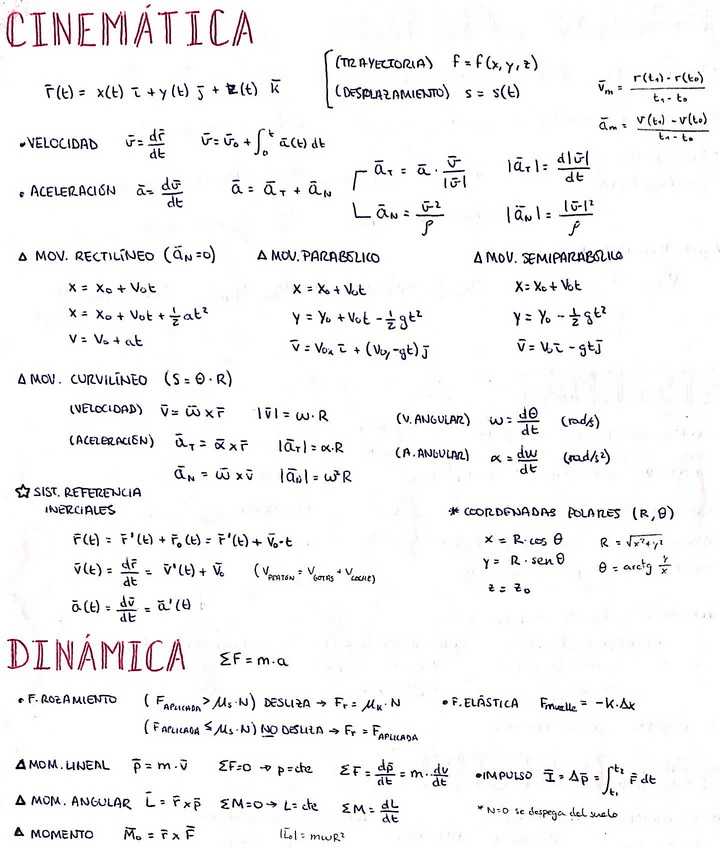 CINEMÁTICA
(TRAYECTORIA) f = f(x, y, z)
r̄(t) = x(t) ī + y(t) j̄ + z(t) k̄
(DESPLAZAMIENTO) s = s(t)
v̄m = (r(t₁) - r(t₀)) / (t₁ - t₀)
ām = (v(t₁) - v(t₀)) / (t₁ - t₀)
• VELOCIDAD v̄ = dr̄/dt v̄ = v̄₀ + ∫₀ᵗ ā(t) dt
• ACELERACIÓN ā = dv̄/dt ā = āT + āN
āT = ā · v̄/|v̄| |āT| = d|v̄|/dt
āN = v̄²/ρ |āN| = |v̄|²/ρ
△ MOV. RECTILÍNEO (āN = 0)
x = x₀ + v₀t
x = x₀ + v₀t + ½ at²
v = v₀ + at
△ MOV. PARABÓLICO
x = x₀ + v₀t
y = y₀ + v₀t - ½ gt²
v̄ = v₀ₓ ī + (v₀y - gt) j̄
△ MOV. SEMIPARABÓLICO
x = x₀ + v₀t
y = y₀ - ½ gt²
v̄ = v₀ ī - gt j̄
△ MOV. CURVILÍNEO (S = θ · R)
(VELOCIDAD) v̄ = ω̄ x r̄ |v̄| = ω · R
(ACELERACIÓN) āT = ᾱ x r̄ |āT| = α · R
āN = ω̄ x v̄ |āN| = ω² R
(V. ANGULAR) ω = dθ/dt (rad/s)
(A. ANGULAR) α = dω/dt (rad/s²)
☆ SIST. REFERENCIA
INERCIALES
r̄(t) = r̄'(t) + r̄₀(t) = r̄'(t) + v̄₀ · t
v̄(t) = dr̄/dt = v̄'(t) + v̄₀ (VPEATÓN = VGOTAS + VCOCHE)
ā(t) = dv̄/dt = ā'(t)
* COORDENADAS POLARES (R, θ)
x = R · cos θ R = √x²+y²
y = R · sen θ θ = arctg y/x
z = z₀
DINÁMICA ΣF = m · a
• F. ROZAMIENTO (FAPLICADA > μs · N) DESLIZA → Fr = μk · N
(FAPLICADA ≤ μs · N) NO DESLIZA → Fr = FAPLICADA
• F. ELÁSTICA Fmuelle = -K · Δx
△ MOM. LINEAL p̄ = m · v̄ ΣF=0 → p = cte ΣF = dp̄/dt = m · dv/dt
• IMPULSO Ī = Δp̄ = ∫t₁^t₂ F̄ dt
△ MOM. ANGULAR L̄ = r̄ x p̄ ΣM=0 → L = cte ΣM = dL/dt
* N=0 se despega del suelo
△ MOMENTO M̄₀ = r̄ x F̄ |L̄₀| = mωR²